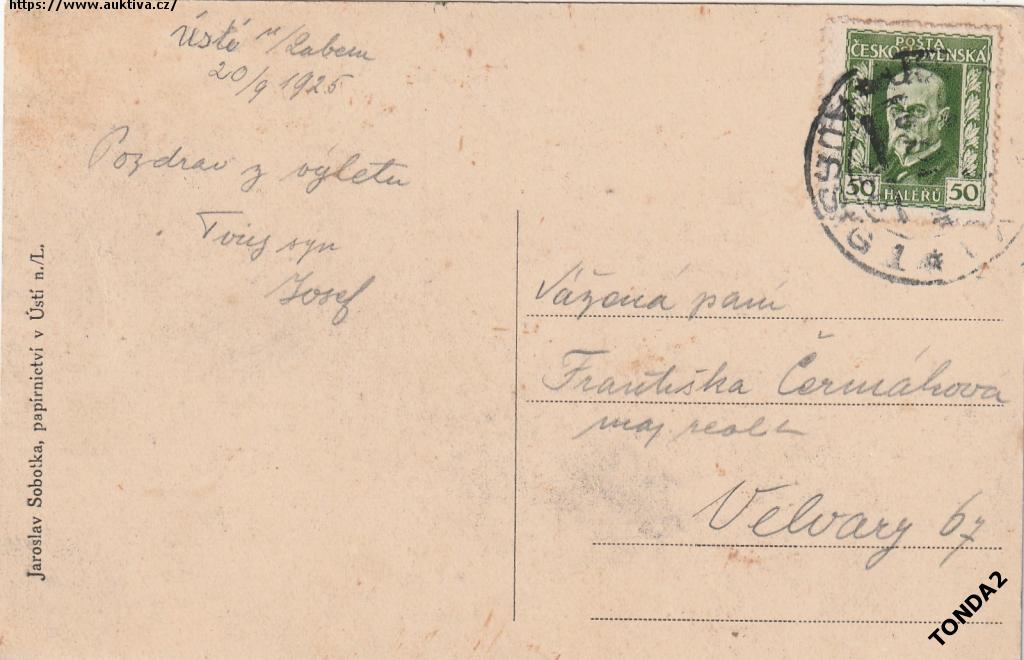 https://www.auktiva.cz/
Ústí n/Labem
20/9 1925
Pozdrav z výletu
Tvůj syn
Josef
POŠTA
ČESKOSLOVENSKÁ
50 HALÉŘŮ 50
AUSSIG 1
Vážená paní
Františka Čermáková
maj realit
Velvary 67
Jaroslav Sobotka, papírnictví v Ústí n./L.
TONDA2